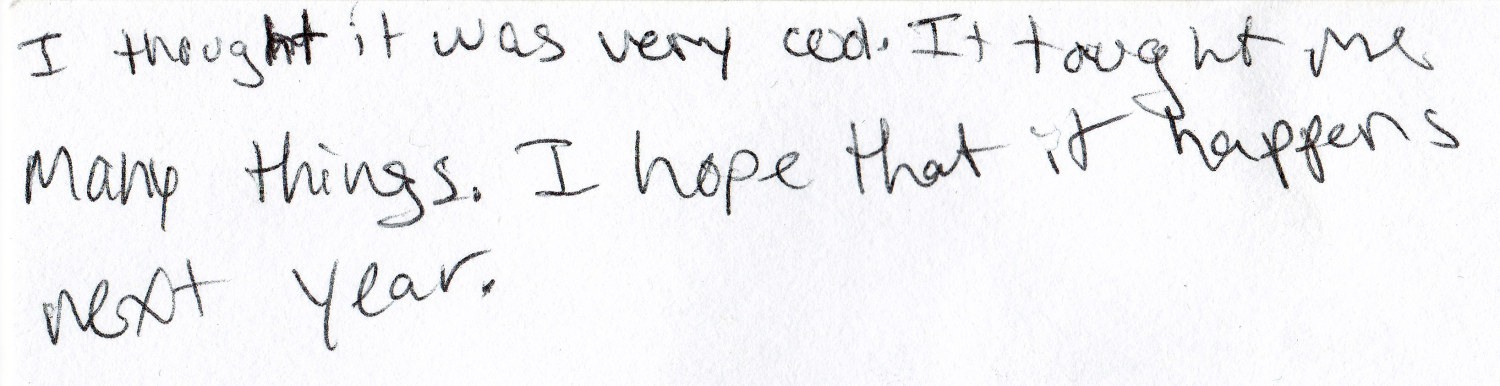 I thought it was very cool. It tought me
Many things. I hope that it happens
next year.